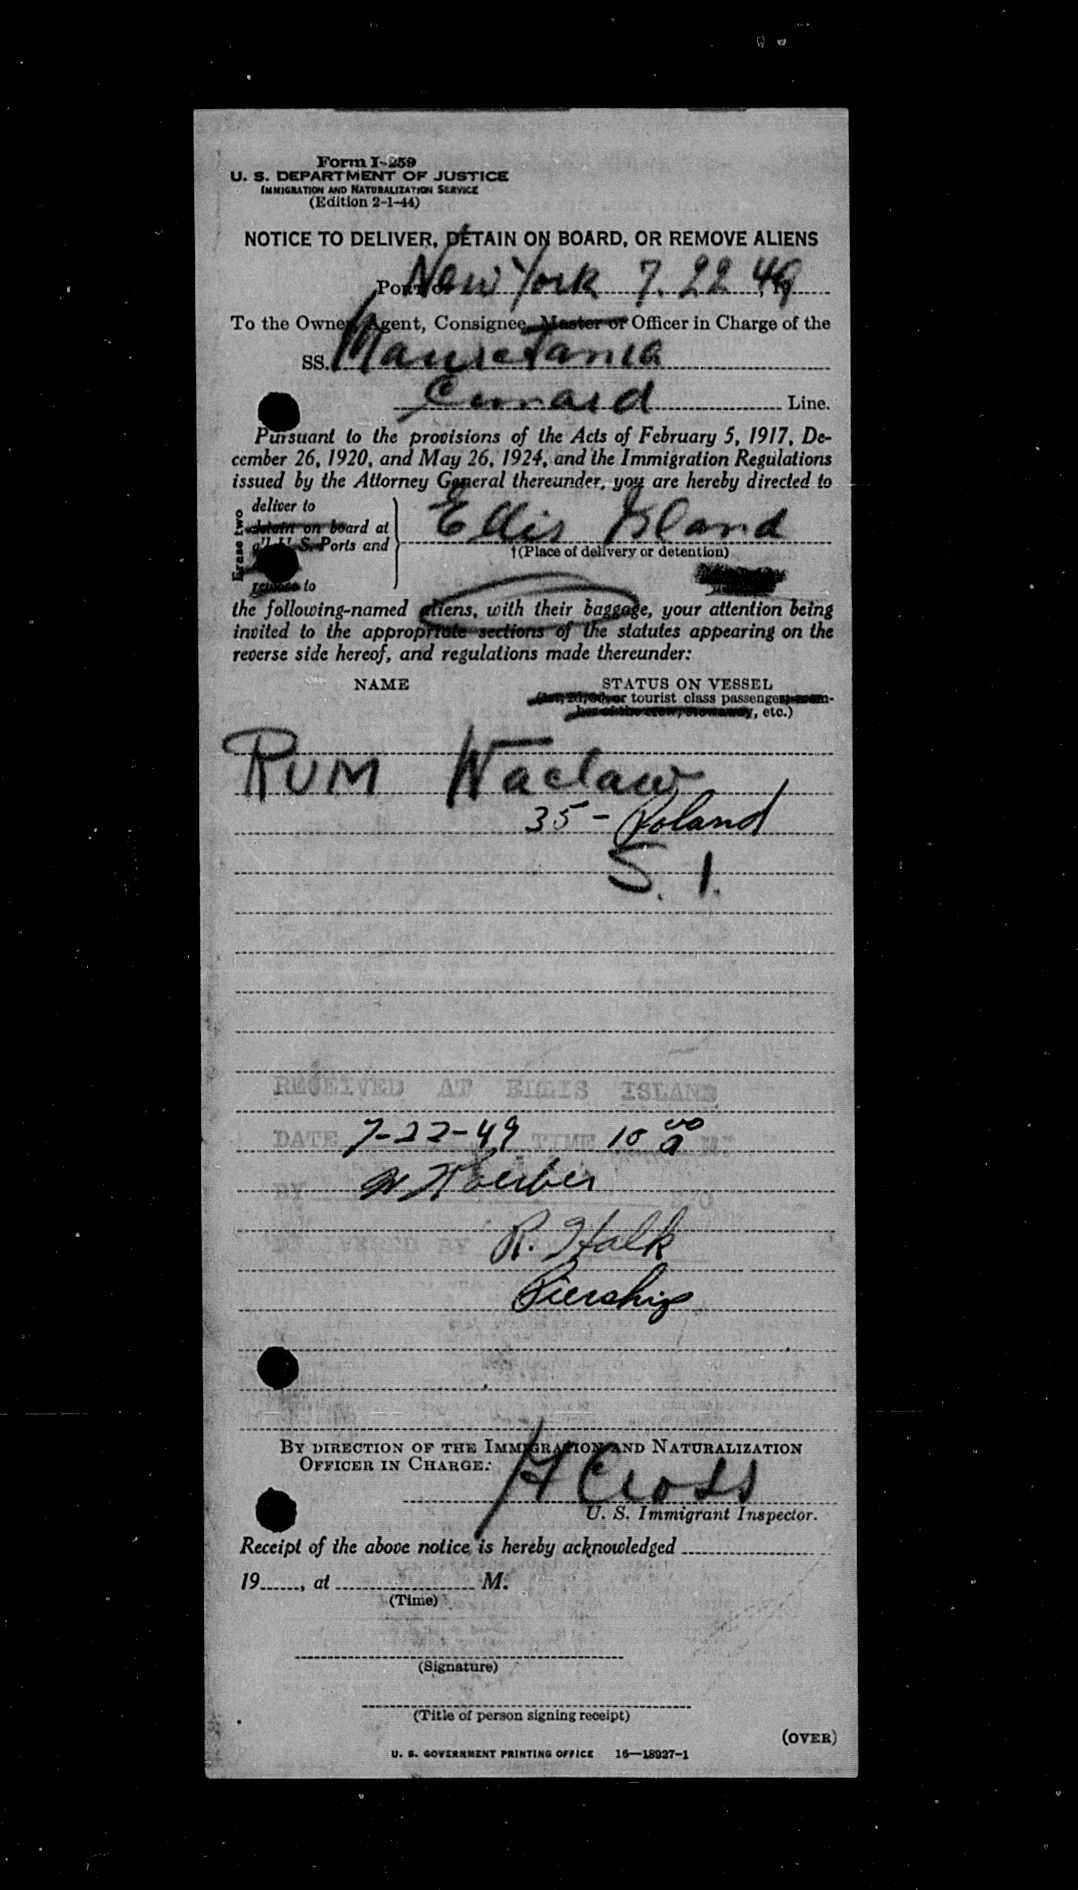 Form I-259
U. S. DEPARTMENT OF JUSTICE
IMMIGRATION AND NATURALIZATION SERVICE
(Edition 2-1-44)
NOTICE TO DELIVER, DETAIN ON BOARD, OR REMOVE ALIENS
Port of New York 7. 22 49, 19
To the Owner, Agent, Consignee, Master or Officer in Charge of the
SS. Mauretania
Cunard Line.
Pursuant to the provisions of the Acts of February 5, 1917, De-
cember 26, 1920, and May 26, 1924, and the Immigration Regulations
issued by the Attorney General thereunder, you are hereby directed to
Erase two
deliver to
detain on board at
all U. S. Ports and
remove to
Ellis Island
†(Place of delivery or detention)
the following-named aliens, with their baggage, your attention being
invited to the appropriate sections of the statutes appearing on the
reverse side hereof, and regulations made thereunder:
NAME STATUS ON VESSEL
(1st, 2d, 3d, or tourist class passenger, mem-
ber of the crew, stowaway, etc.)
RUM Waclaw
35 - Poland
S. I.
RECEIVED AT ELLIS ISLAND
DATE 7-22-49 TIME 10 00 a M.
BY W Koerber
DELIVERED BY R. Halk
Piership
BY DIRECTION OF THE IMMIGRATION AND NATURALIZATION
OFFICER IN CHARGE:
H Cross
U. S. Immigrant Inspector.
Receipt of the above notice is hereby acknowledged
19____, at ____ M.
(Time)
(Signature)
(Title of person signing receipt)
(OVER)
U. S. GOVERNMENT PRINTING OFFICE 16—18927-1